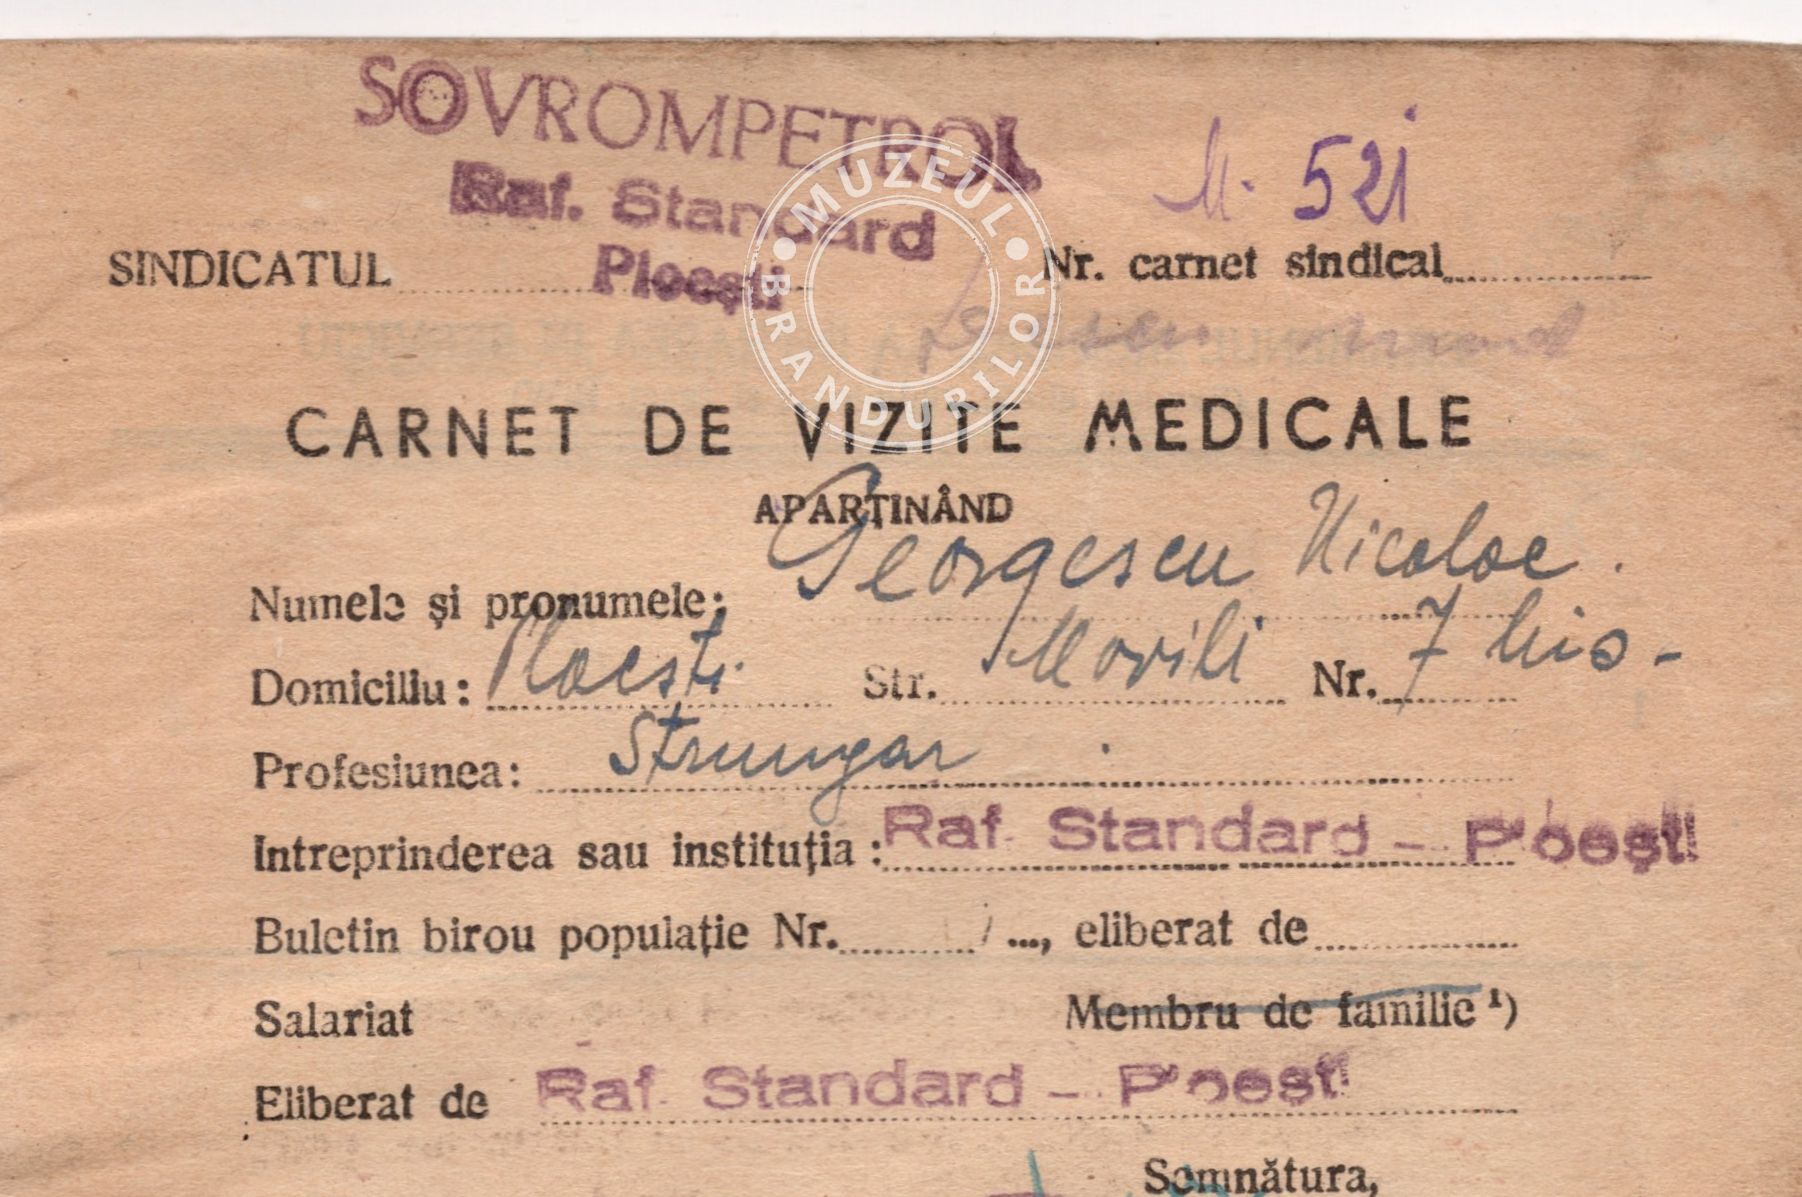 SOVROMPETROL
Raf. Standard
Ploești
M. 521
SINDICATUL
Nr. carnet sindical
MUZEUL BRANDURILOR
CARNET DE VIZITE MEDICALE
APARȚINÂND
Numele și pronumele: Georgescu Nicolae.
Domiciliu: Ploești. Str. Movili Nr. 7 bis-
Profesiunea: Strungar
Intreprinderea sau instituția: Raf. Standard - Ploești
Buletin birou populație Nr. ..., eliberat de
Salariat Membru de familie ¹)
Eliberat de Raf. Standard - Ploești
Semnătura,